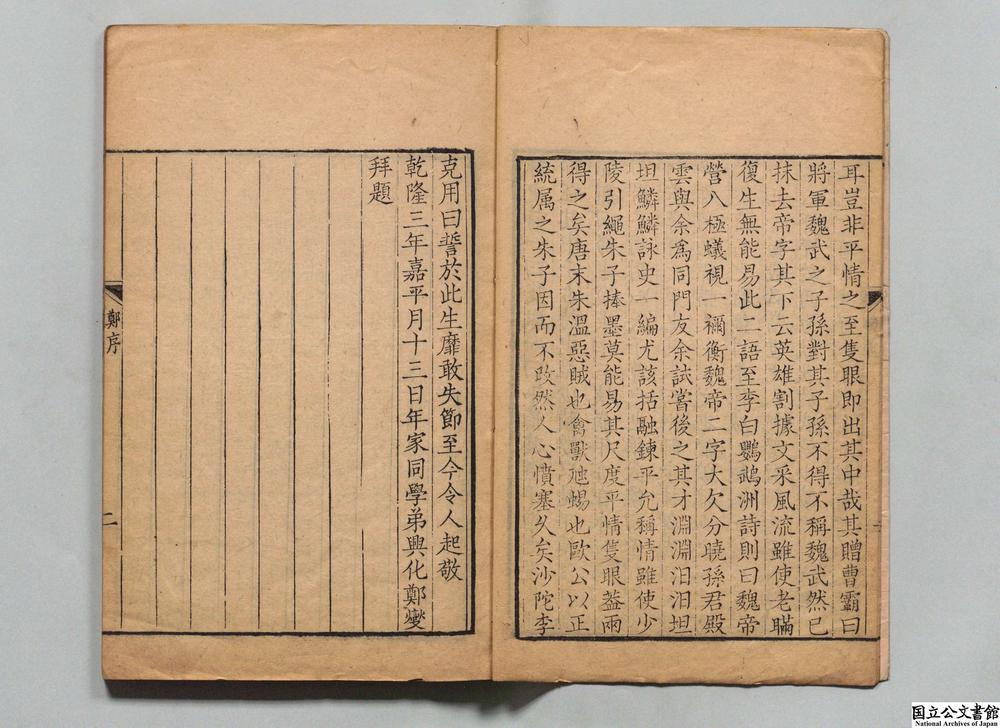 耳豈非平情之至隻眼即出其中哉其贈曹霸曰
將軍魏武之子孫對其子孫不得不稱魏武然已
抹去帝字其下云英雄割據文采風流雖使老瞞
復生無能易此二語至李白鸚鵡洲詩則曰魏帝
營八極蟻視一禰衡魏帝二字大欠分曉孫君殿
雲與余為同門友余試嘗後之其才淵淵汩汩坦
坦鱗鱗詠史一編尤該括融鍊平允稱情雖使少
陵引繩朱子捧墨莫能易其尺度平情隻眼葢兩
得之矣唐末朱溫惡賊也禽獸虺蜴也歐公以正
統属之朱子因而不改然人心憤塞久矣沙陀李
克用曰誓於此生靡敢失節至今令人起敬
乾隆三年嘉平月十三日年家同學弟興化鄭燮
拜題
鄭序
二
国立公文書館
National Archives of Japan